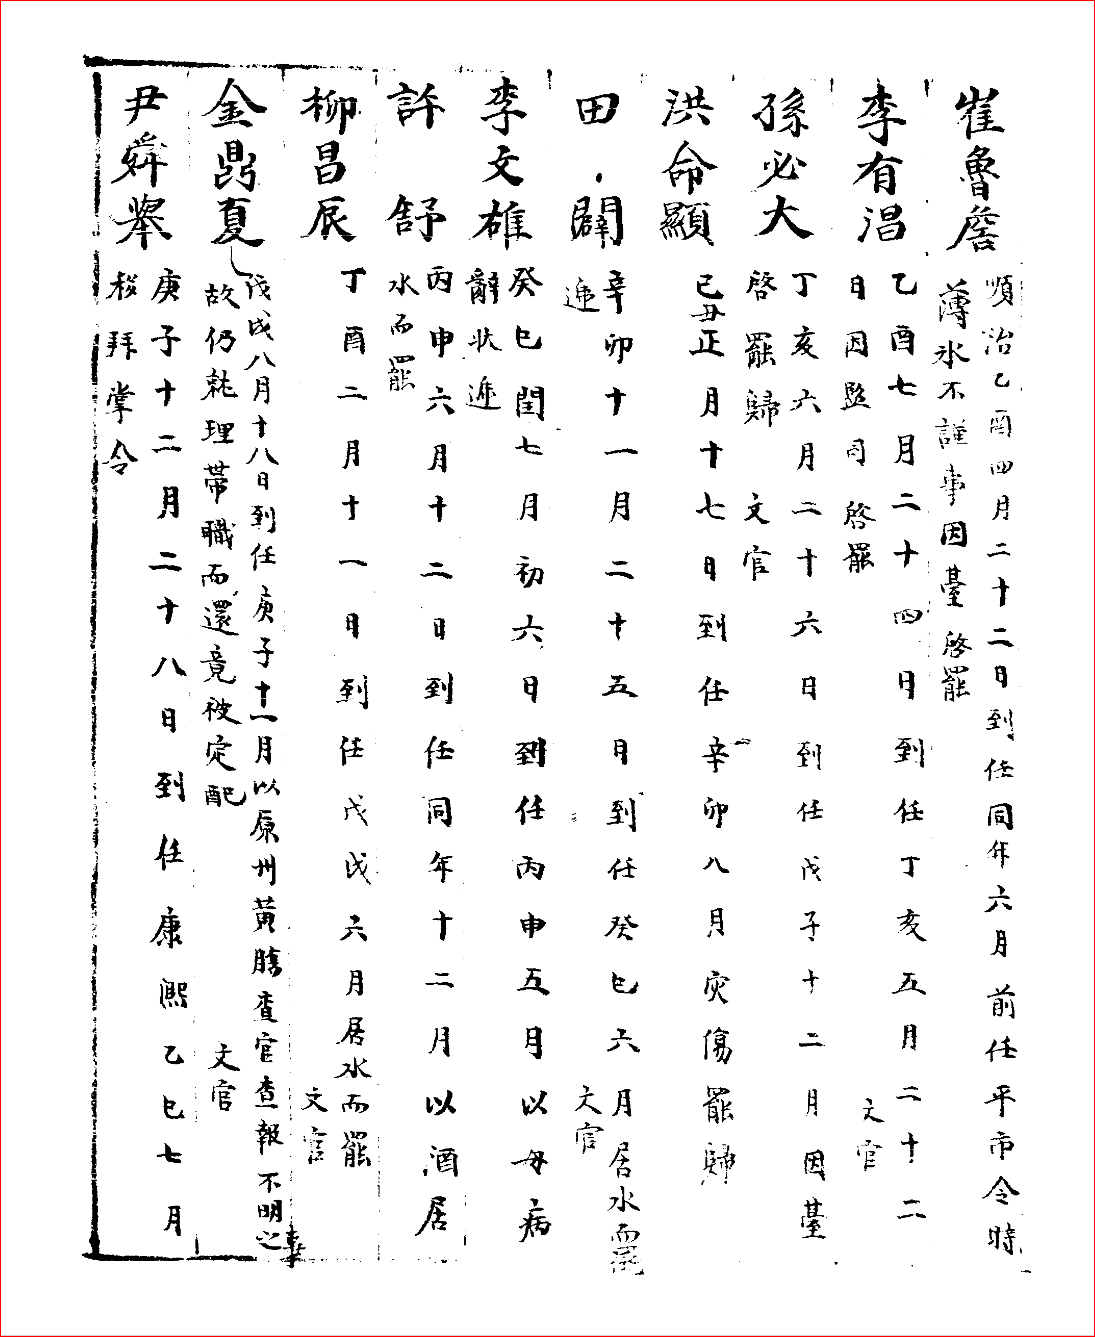 崔魯詹
順治乙酉四月二十二日到任同年六月前任平市令時
薄氷不謹事因臺啓罷
李有淐
乙酉七月二十四日到任丁亥五月二十二
日因監司啓罷
文官
孫必大
丁亥六月二十六日到任戊子十二月因臺
啓罷歸
文官
洪命顯
己丑正月十七日到任辛卯八月灾傷罷歸
田闢
辛卯十一月二十五日到任癸巳六月居水而罷
遞
文官
李文雄
癸巳閏七月初六日到任丙申五月以母病
辭狀遞
許舒
丙申六月十二日到任同年十二月以酒居
水而罷
柳昌辰
丁酉二月十一日到任戊戌六月居水而罷
文官
金鼎夏
戊戌八月十八日到任庚子十一月以原州黃膓査官查報不明之事
故仍就理帶職而還竟被定配
文官
尹舜擧
庚子十二月二十八日到任康熙乙巳七月
移拜掌令